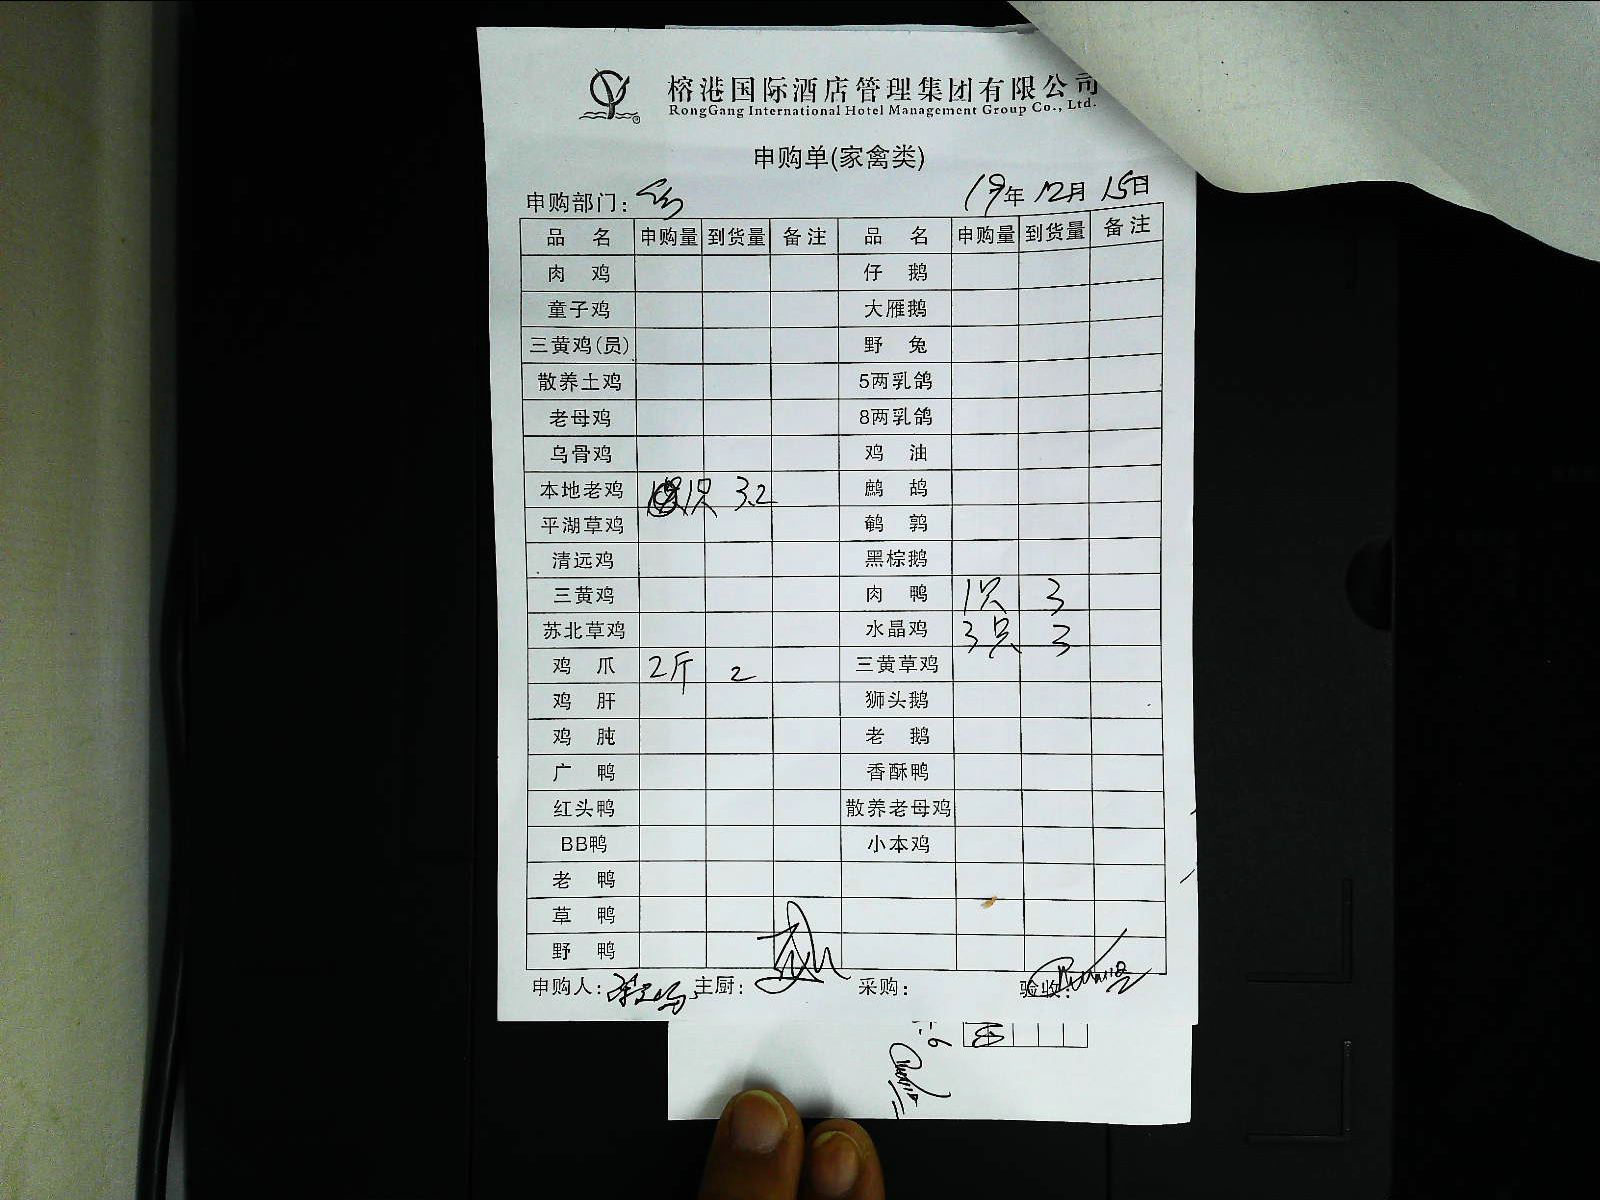 榕港国际酒店管理集团有限公司
RongGang International Hotel Management Group Co., Ltd.
申购单(家禽类)
申购部门: 19年 12月 15日
品 名 申购量 到货量 备注 品 名 申购量 到货量 备注
肉 鸡 仔 鹅
童子鸡 大雁鹅
三黄鸡(员) 野 兔
散养土鸡 5两乳鸽
老母鸡 8两乳鸽
乌骨鸡 鸡 油
本地老鸡 1只 3.2 鹧 鸪
平湖草鸡 鹌 鹑
清远鸡 黑棕鹅
三黄鸡 肉 鸭 1只 3
苏北草鸡 水晶鸡 3只 3
鸡 爪 2斤 2 三黄草鸡
鸡 肝 狮头鹅
鸡 肫 老 鹅
广 鸭 香酥鸭
红头鸭 散养老母鸡
BB鸭 小本鸡
老 鸭
草 鸭
野 鸭
申购人: 主厨: 采购: 验收: